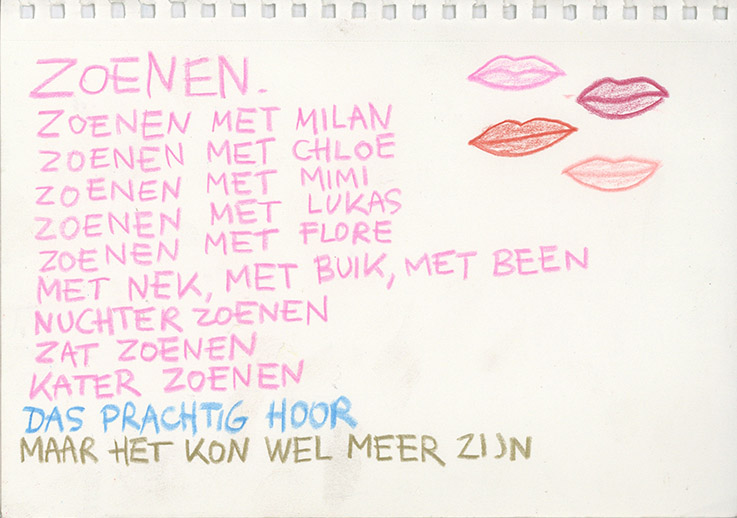 ZOENEN.
ZOENEN MET MILAN
ZOENEN MET CHLOE
ZOENEN MET MIMI
ZOENEN MET LUKAS
ZOENEN MET FLORE
MET NEK, MET BUIK, MET BEEN
NUCHTER ZOENEN
ZAT ZOENEN
KATER ZOENEN
DAS PRACHTIG HOOR
MAAR HET KON WEL MEER ZIJN